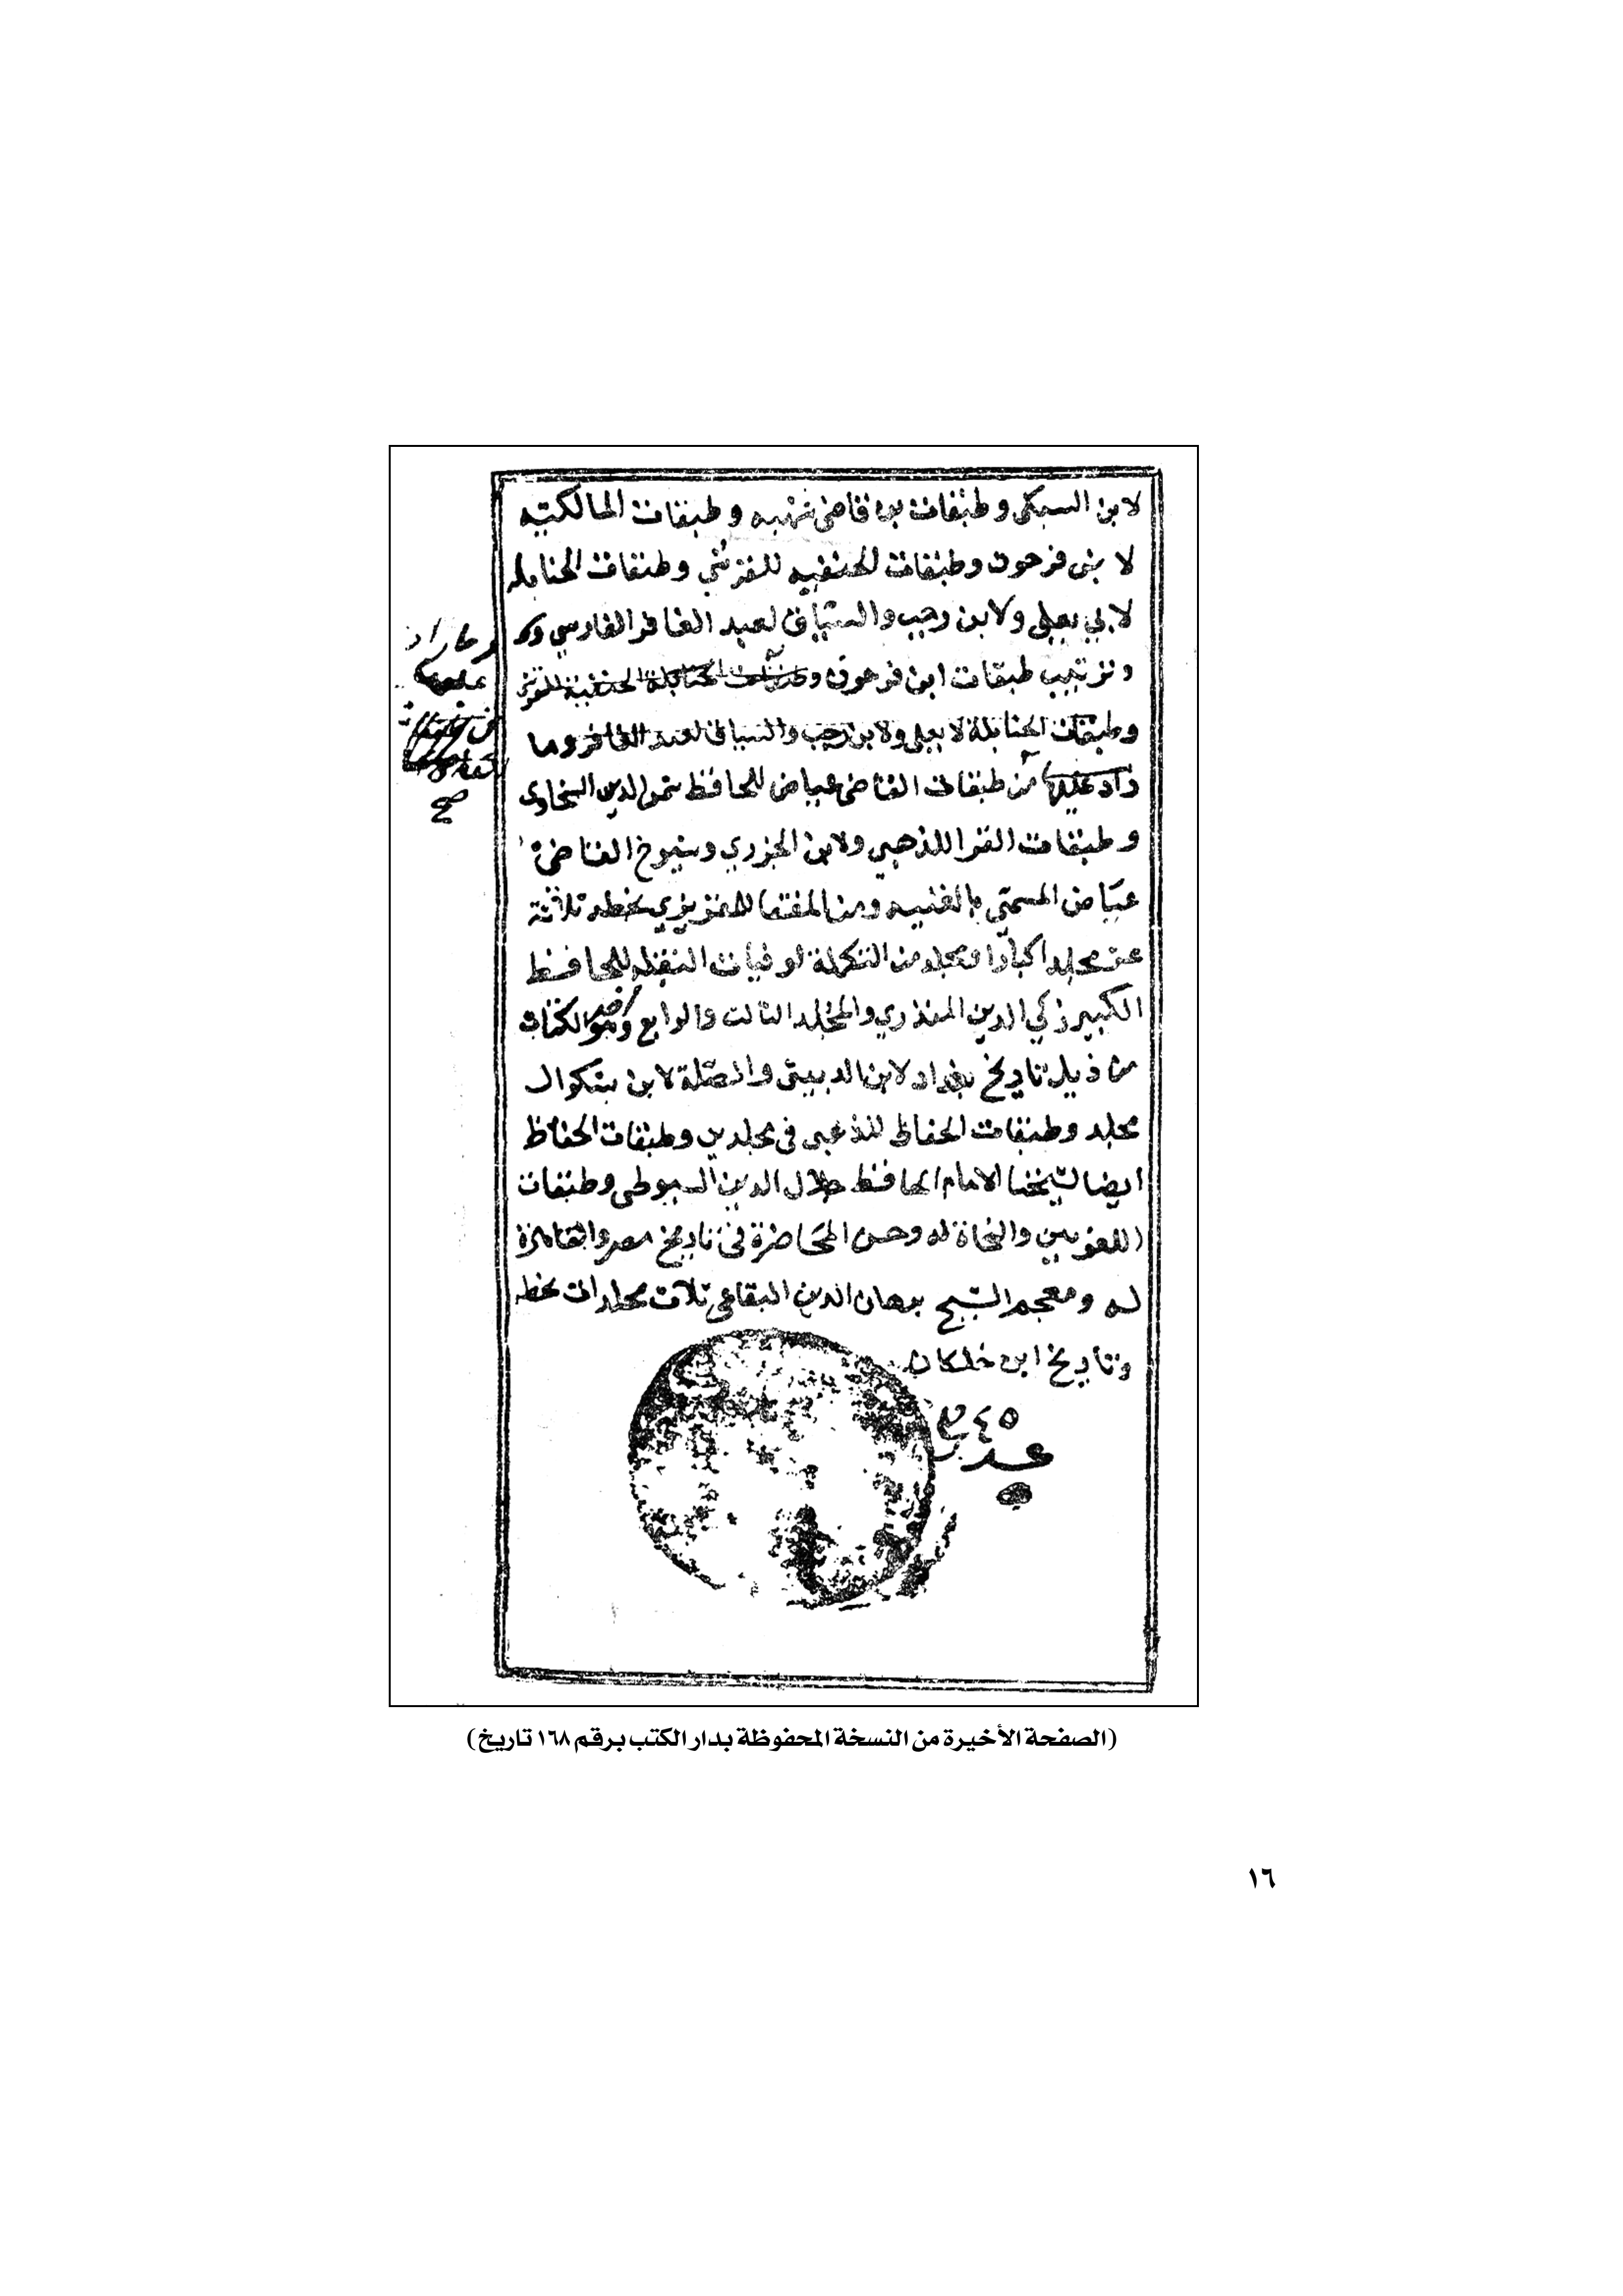 لابن السبكي وطبقات بن قاضي شهبه وطبقات المالكيه
لابن فرحون وطبقات الحنفيه للقرشي وطبقات الحنابله
لابي يعلى ولابن رجب والسياق لعبد الغافر الفارسي
وترتيب طبقات ابن فرحون وطبقات الحنابلة الحنفية
وطبقات الحنابلة لابي يعلى ولابن رجب والسياق لعبد الغافر وما
زاد عليها من طبقات القاضي عياض للحافظ شمس الدين السخاوى
وطبقات القرا للذهبي ولابن الجزري وشيوخ القاضي
عياض المسمى بالغنيه ومن المقفا للمقريزي بخطه ثلاثة
عشر مجلدا كبارا ومجلد من التكملة لوفيات النقله للحافظ
الكبير زكي الدين المنذري والمجلد الثالث والرابع وهو الكتاب
من ذيل تاريخ بغداد لابن الدبيثي والصلة لابن بشكوال
مجلد وطبقات الحفاظ للذهبى في مجلدين وطبقات الحفاظ
ايضا لشيخنا الامام الحافظ جلال الدين السيوطى وطبقات
اللغويين والنحاة له وحسن المحاضرة في تاريخ مصر والقاهرة
له ومعجم الشيخ برهان الدين البقاعي ثلاث مجلدات بخطه
وتاريخ ابن خلكان
وما زاد
صح
(الصفحة الأخيرة من النسخة المحفوظة بدار الكتب برقم ١٦٨ تاريخ)
١٦